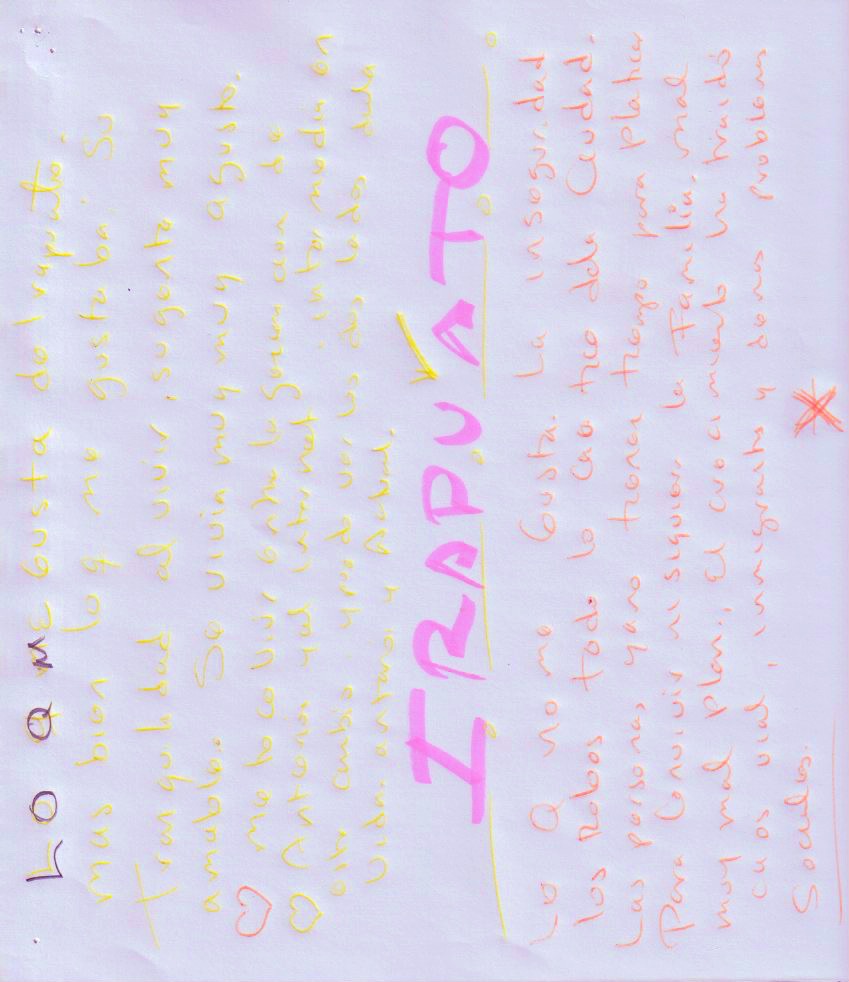 LO Q ME GUSTA de Irapuato.
mas bien lo q me gustaba. Su
tranquilidad al vivir, su gente muy
amable. Se vivia muy muy agusto.
me toco vivir entre la generacion de
Antenas y el internet internedia en
otro cambio y puede ver los dos lados de la
vida. antena y Actual.
IRAPUATO
Lo Q no me Gusta. La inseguridad
los Robos todo lo caotico dela Ciudad.
Las personas ya no tienen tiempo para platicar
Para Convivir ni siquiera la Familia, mal
muy mal plan., El crecimiento ha traido
caos vial, inmigrantes y demas problemas
Sociales.